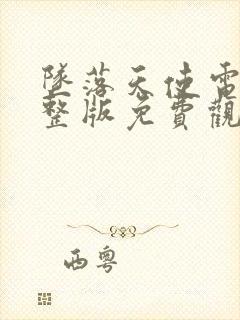 墜落天使電
整版免費觀
西粵